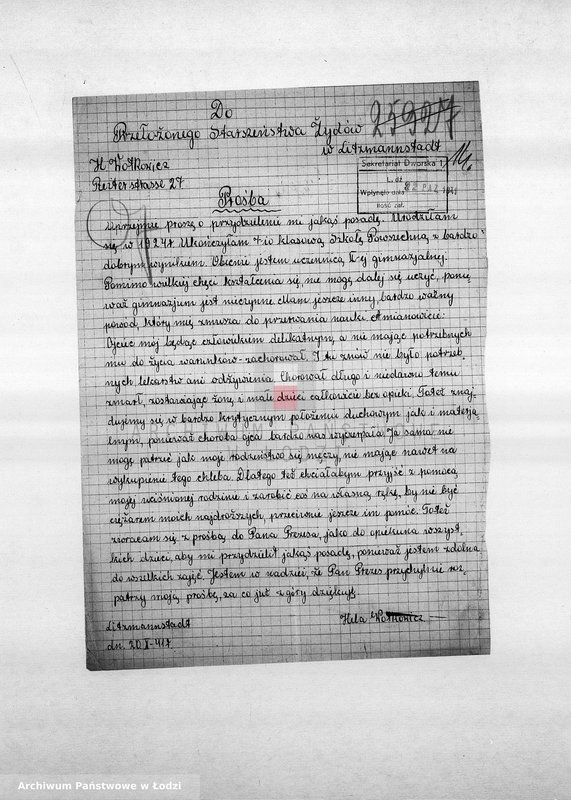 Do
Przełożonego Starszeństwa Żydów
w Litzmannstadt
25927
H. Wołkowicz
Reiterstrasse 27
Sekretariat Dworska 1
Wpłynęło dnia
Ilość zał.
Prośba
Uprzejmie proszę o przydzielenie mi jakąś posadę. Urodziłam
się w 1924 r. Ukończyłam 7-io klasową Szkołę Powszechną z bardzo
dobrym wynikiem. Obecnie jestem uczennicą gimnazjalnej.
Pomimo wielkiej chęci kształcenia się, nie mogę dalej się uczyć, ponie
waż gimnazjum jest nieczynne. Mam jeszcze inny, bardzo ważny
powód, który mię zmusza do przerwania nauki. Amianowicie:
Ojciec mój będąc człowiekiem delikatnym, a nie mając potrzebnych
mu do życia warunków-zachorował. I tu znów nie było potrzeb.
nych lekarstw ani odżywienia. Chorował długo i niedawno temu
zmarł, zostawiając żonę i małe dzieci całkowicie bez opieki. Toteż znaj-
dujemy się w bardzo krytycznym położeniu duchowym jak i materja
lnym, ponieważ choroba ojca bardzo nas wyczerpała. Ja sama nie
mogę patrzeć jak moje rodzeństwo się męczy, nie mając nawet na
wykupienie tego chleba. Dlatego też chciałabym przyjść z pomocą
mojej uciśnionej rodzinie i zarobić coś na własną rękę, by nie być
ciężarem moich najdroższych, przeciwnie jeszcze im pomóc. Toteż
zwracam się z prośbą do Pana Prezesa, jako do opiekuna wszyst.
kich dzieci, aby mi przydzielił jakąś posadę, ponieważ jestem zdolna
do wszelkich zajęć. Jestem w nadziei, że Pan Prezes przychylnie roz.
patrzy moją prośbę, za co już z góry dziękuję.
Litzmannstadt
dn. 20 I-41 r.
Hela Wołkowicz
Archiwum Państwowe w Łodzi